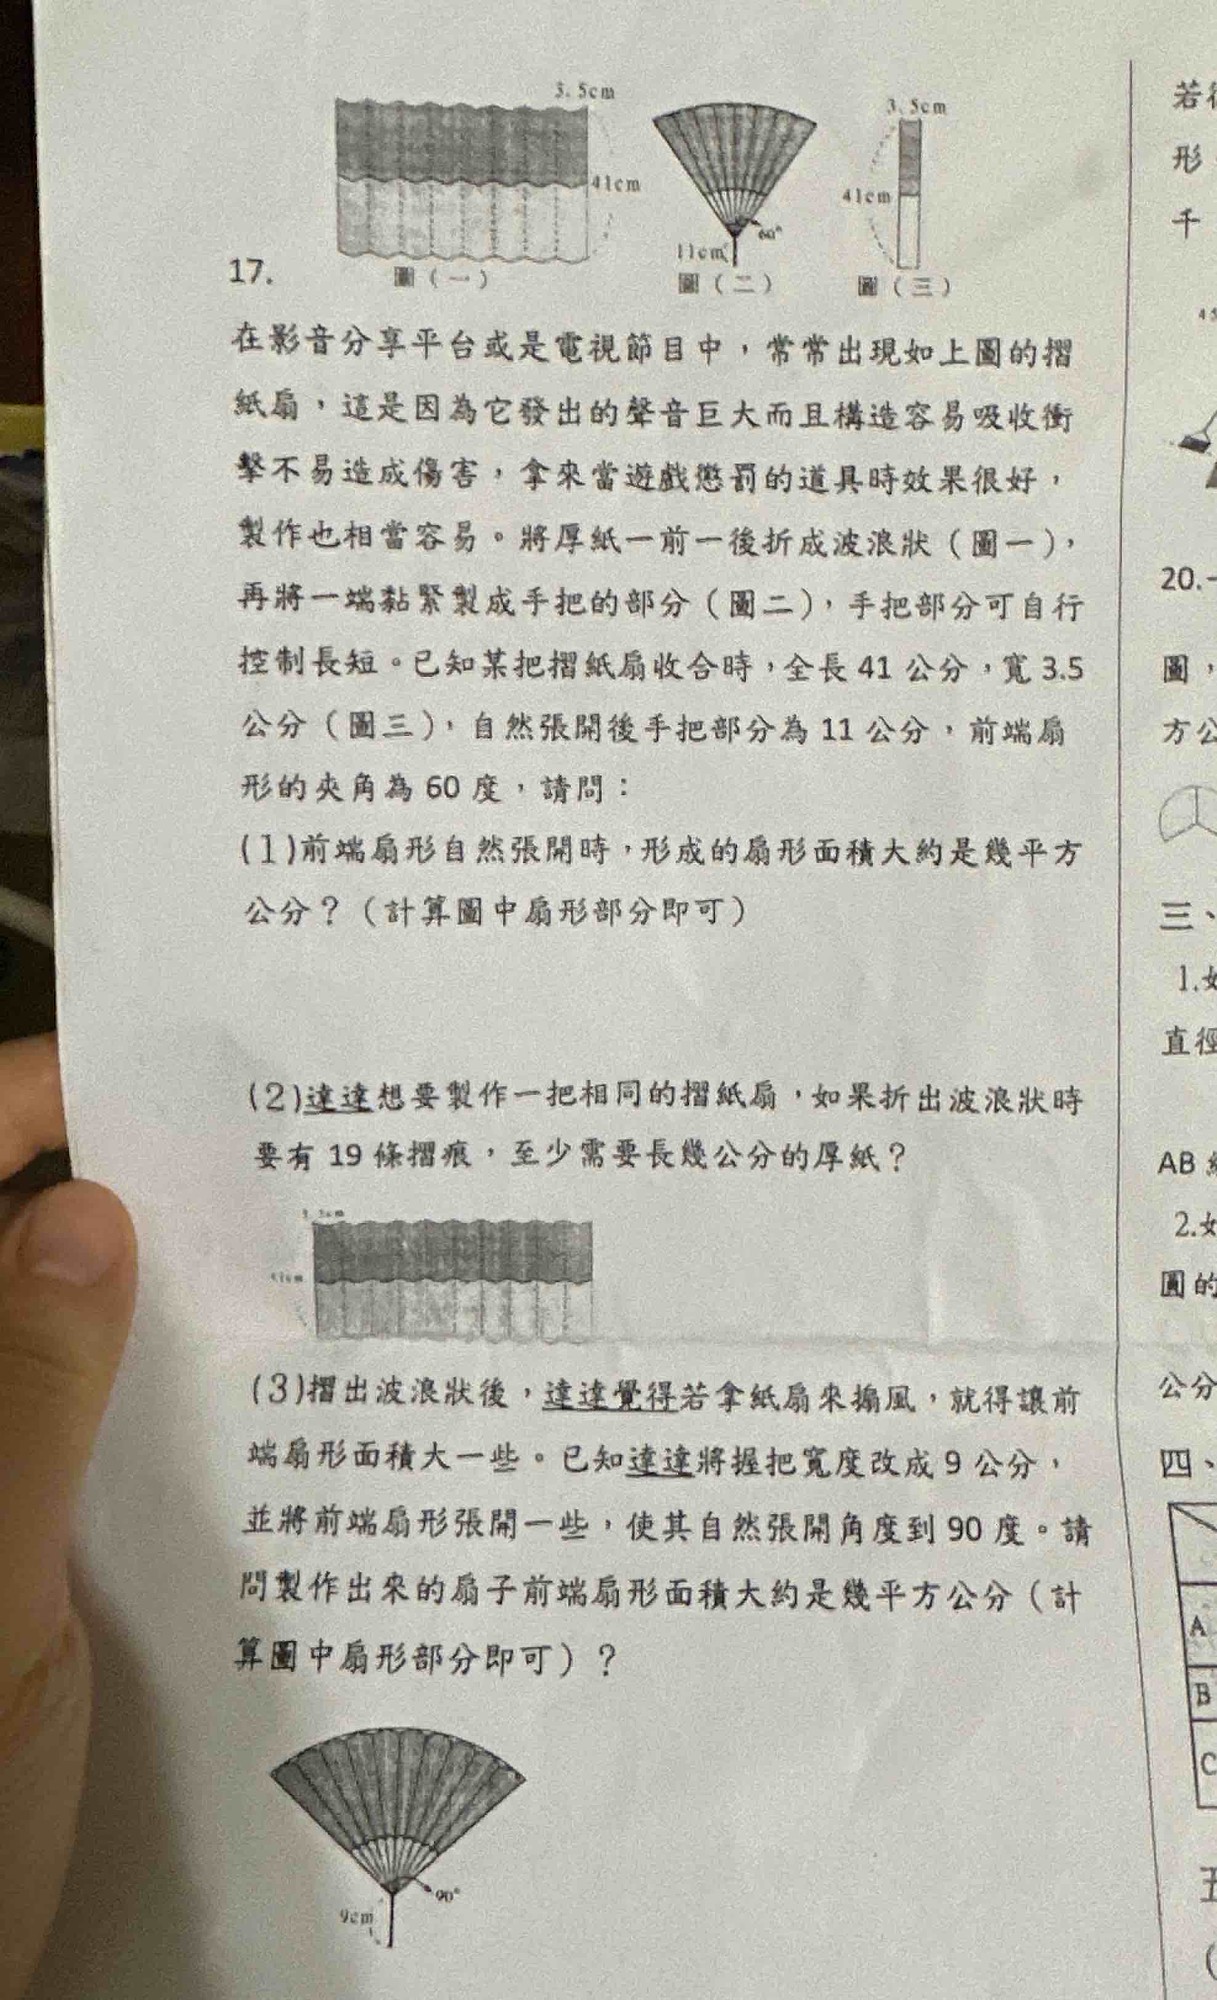 3.5cm
41cm
圖(一)
60°
11cm
圖(二)
3.5cm
41cm
圖(三)
17.
在影音分享平台或是電視節目中，常常出現如上圖的摺
紙扇，這是因為它發出的聲音巨大而且構造容易吸收衝
擊不易造成傷害，拿來當遊戲懲罰的道具時效果很好，
製作也相當容易。將厚紙一前一後折成波浪狀(圖一)，
再將一端黏緊製成手把的部分(圖二)，手把部分可自行
控制長短。已知某把摺紙扇收合時，全長 41 公分，寬 3.5
公分(圖三)，自然張開後手把部分為 11 公分，前端扇
形的夾角為 60 度，請問：
(1)前端扇形自然張開時，形成的扇形面積大約是幾平方
公分？(計算圖中扇形部分即可)
(2)達達想要製作一把相同的摺紙扇，如果折出波浪狀時
要有 19 條摺痕，至少需要長幾公分的厚紙？
3.5cm
41cm
(3)摺出波浪狀後，達達覺得若拿紙扇來搧風，就得讓前
端扇形面積大一些。已知達達將握把寬度改成 9 公分，
並將前端扇形張開一些，使其自然張開角度到 90 度。請
問製作出來的扇子前端扇形面積大約是幾平方公分(計
算圖中扇形部分即可)？
90°
9cm
若
形
千
45
20.
圖，
方公
三、
1.如
直徑
AB
2.如
圓的
公分
四、
A
B
C
五